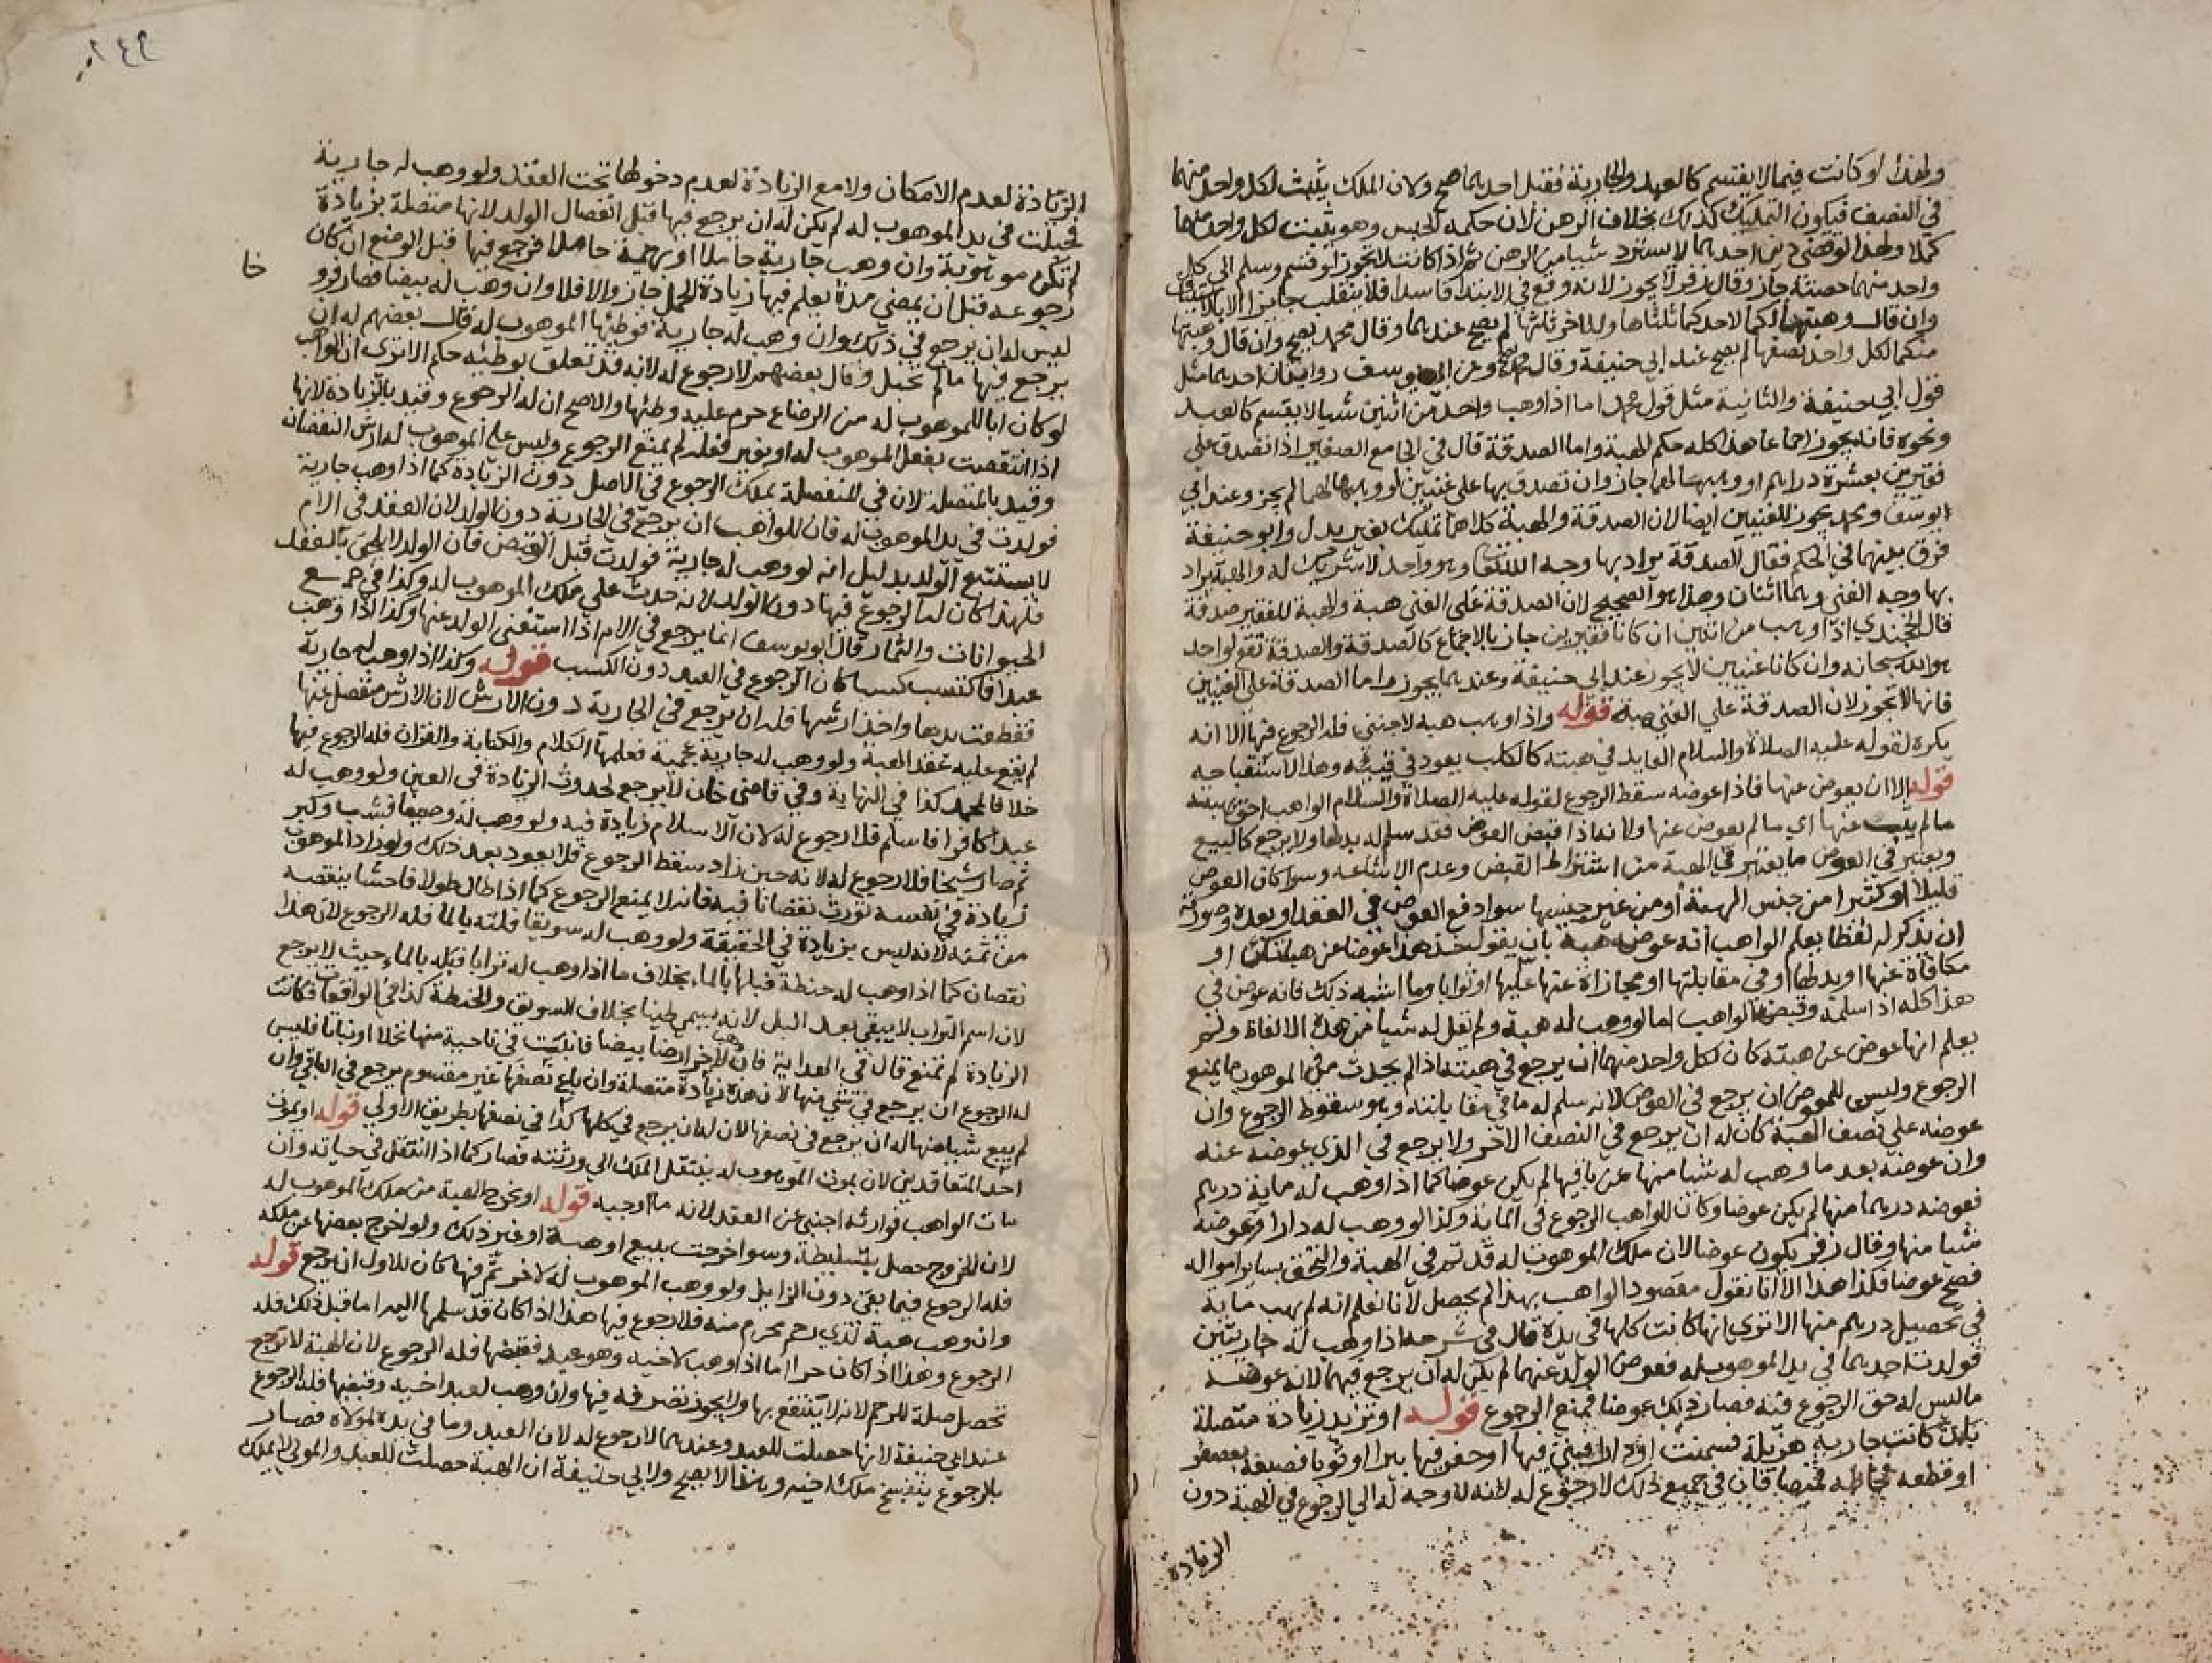 ولهذا لو كانت فيما لا ينقسم كالعبد والجارية فقبل احدهما صح ولان الملك يثبت لكل واحد منهما
في النصف فيكون التمليك كذلك بخلاف الرهن لان حكمه الحبس وهو يثبت لكل واحد منهما
كملا ولهذا لو قضى دين احدهما لا يسترد شيا من الرهن ثم اذا كانت لا تجوز لو قسم وسلم الى كل
واحد منهما حصته جاز وقال زفر لا يجوز لانه وقع في الابتدا فاسدا فلا ينقلب جايزا الا بالاستيناف
وان قال وهبتها لكما لاحدكما ثلثاها وللاخر ثلثها لم يصح عندهما وقال محمد يصح وان قال وهبتها
منكما لكل واحد نصفها لم يصح عند ابي حنيفة وقال محمد يصح وعن ابي يوسف روايتان احدهما مثل
قول ابي حنيفة والثانية مثل قول محمد اما اذا وهب واحد من اثنين شيا لا يقسم كالعبد
ونحوه فانه يجوز اجماعا هذا كله حكم الهبة واما الصدقة قال في الجامع الصغير اذا تصدق على
فقيرين بعشرة دراهم او وهبها لهما جاز وان تصدق بها على غنيين او وهبها لهما لم يجز وعند ابي
يوسف ومحمد يجوز للغنيين ايضا لان الصدقة والهبة كلاهما تمليك بغير بدل وابو حنيفة
فرق بينهما في الحكم فقال الصدقة يراد بها وجه الله تعالى وهو واحد لا شريك له والهبة يراد
بها وجه الغني وهما اثنان وهذا هو الصحيح لان الصدقة على الغني هبة والهبة للفقير صدقة
قال الخجندي اذا وهب من اثنين ان كانا فقيرين جاز بالاجماع كالصدقة والصدقة تقع لواحد
هو الله سبحانه وان كانا غنيين لا يجوز عند ابي حنيفة وعندهما يجوز واما الصدقة على الغنيين
فانها لا تجوز لان الصدقة على الغني هبة قوله واذا وهب هبة لاجنبي فله الرجوع فيها الا انه
يكره لقوله عليه الصلاة والسلام العايد في هبته كالكلب يعود في قيئه وهذا لاستقباحه
قوله الا ان يعوض عنها فاذا عوضه سقط الرجوع لقوله عليه الصلاة والسلام الواهب احق بهبته
ما لم يثب عنها اي ما لم يعوض عنها ولانه اذا قبض العوض فقد سلم له بدلها ولا يرجع كالبيع
ويعتبر في العوض ما يعتبر في الهبة من اشتراط القبض وعدم الاشاعة وسوا كان العوض
قليلا او كثيرا من جنس الهبة او من غير جنسها سوا دفع العوض في العقد او بعده وصورته
ان يذكر له لفظا يعلم الواهب انه عوض هبة بان يقول خذ هذا عوضا عن هبتك او
مكافاة عنها او بدلها او في مقابلتها او مجازاة عنها عليها او ثوابا وما اشبه ذلك فانه عوض في
هذا كله اذا سلمه وقبضه الواهب اما لو وهب له هبة ولم يقل له شيا من هذه الالفاظ ولم
يعلم انها عوض عن هبته كان لكل واحد منهما ان يرجع في هبته اذا لم يحدث في الموهوب ما يمنع
الرجوع وليس للمعوض ان يرجع في العوض لانه سلم له ما في مقابلته وهو سقوط الرجوع وان
عوضه على نصف الهبة كان له ان يرجع في النصف الاخر ولا يرجع في الذي عوضه عنه
وان عوضه بعد ما وهب له شيا منها عن باقيها لم يكن عوضا كما اذا وهب له ماية درهم
فعوضه درهما منها لم يكن عوضا وكان للواهب الرجوع في الماية وكذا لو وهب له دارا فعوضه
شيا منها وقال زفر يكون عوضا لان ملك الموهوب له قد تم في الهبة والتحق بساير امواله
فصح عوضا فكذا هذا الا انا نقول مقصود الواهب بهذا لم يحصل لانا نعلم انه لم يهب ماية
في تحصيل درهم منها الا ترى انها كانت كلها في يده قال في شرحه اذا وهب له جاريتين
فولدت احدهما في يد الموهوب له فعوض الولد عنهما لم يكن له ان يرجع فيهما لانه عوضه
ما ليس له حق الرجوع فيه فصار ذلك عوضا فمنع الرجوع قوله او تزيد زيادة متصلة
بان كانت جارية هزيلة فسمنت او دارا فبنى فيها او حفر فيها بيرا او ثوبا فصبغه بعصفر
او قطعه فخاطه قميصا فان في جميع ذلك لا رجوع له لانه لا وجه له الى الرجوع في الهبة دون
الزيادة
٢٤٩
الزيادة لعدم الامكان ولا مع الزيادة لعدم دخولها تحت العقد ولو وهب له جارية
فحبلت في يد الموهوب له لم يكن له ان يرجع فيها قبل انفصال الولد لانها متصلة بزيادة
لم تكن موهوبة وان وهب جارية حاملا او بهيمة حاملا فرجع فيها قبل الوضع ان كان
رجوعه قبل ان يمضي مدة يعلم فيها زيادة الحمل جاز والا فلا وان وهب له بيضا فصار فرو
خا
ليس له ان يرجع في ذلك وان وهب له جارية فوطئها الموهوب له قال بعضهم له ان
يرجع فيها ما لم تحبل وقال بعضهم لا رجوع له لانه قد تعلق بوطئه حكم الا ترى ان الواهب
لو كان ابا للموهوب له من الرضاع حرم عليه وطئها والاصح ان له الرجوع وقيد بالزيادة لانها
اذا انتقصت بفعل الموهوب له او بغير فعله لم يمنع الرجوع وليس على الموهوب له ارش النقصان
وقيد بالمتصلة لان في المنفصلة يملك الرجوع في الاصل دون الزيادة كما اذا وهب جارية
فولدت في يد الموهوب له فان للواهب ان يرجع في الجارية دون الولد لان العقد في الام
لا يستتبع الولد بدليل انه لو وهب له جارية فولدت قبل القبض فان الولد لا يلحق بالعقد
فلهذا كان له الرجوع فيها دون الولد لانه حدث على ملك الموهوب له وكذا في جميع
الحيوانات والثمار وقال ابو يوسف انما يرجع في الام اذا استغنى الولد عنها وكذا اذا وهب
عبدا فاكتسب كسبا كان الرجوع في العبد دون الكسب قوله وكذا اذا وهب له جارية
فقطعت يدها واخذ ارشها فله ان يرجع في الجارية دون الارش لان الارش منفصل عنها
لم يقع عليه عقد الهبة ولو وهب له جارية عجمية فعلمها الكلام والكتابة والقران فله الرجوع فيها
خلافا لمحمد كذا في النهاية وفي قاضي خان لا يرجع لحدوث الزيادة في العين ولو وهب له
عبدا كافرا فاسلم فلا رجوع له لان الاسلام زيادة فيه ولو وهب له وصيفا فشب وكبر
ثم صار شيخا فلا رجوع له لانه حين زاد سقط الرجوع فلا يعود بعد ذلك ولو زاد الموهوب
زيادة في نفسه تورث نقصانا فيه فانه لا يمنع الرجوع كما اذا طال طولا فاحشا ينقصه
من ثمنه لانه ليس بزيادة في الحقيقة ولو وهب له سويقا فلته بالما فله الرجوع لان هذا
نقصان كما اذا وهب له حنطة فبلها بالماء بخلاف ما اذا وهب له ترابا فبله بالماء حيث لا يرجع
لان اسم التراب لا يبقى بعد البل لانه يسمى طينا بخلاف السويق والحنطة كذا في الواقعات فكانت
الزيادة لم تمنع قال في الهداية فان وهب لاخر ارضا بيضا فانبتت في ناحية منها نخلا او نباتا فليس
له الرجوع ان يرجع في شي منها لان هذه زيادة متصلة وان باع نصفها غير مقسوم يرجع في الباقي وان
لم يبع شيا منها له ان يرجع في نصفها لان له ان يرجع في كلها كذا في نصفها بطريق الاولى قوله او يموت
احد المتعاقدين لان بموت الموهوب له ينتقل الملك الى ورثته فصار كما اذا انتقل في حياته وان
مات الواهب فوارثه اجنبي عن العقد لانه ما اوجبه قوله او تخرج الهبة من ملك الموهوب له
لان الخروج حصل بتسليطه وسوا خرجت ببيع او هبة او غير ذلك ولو اخرج بعضها عن ملكه
فله الرجوع فيما بقي دون الزايل ولو وهب الموهوب له لاخر ثم رجع فيها كان للاول ان يرجع قوله
وان وهب هبة لذي رحم محرم منه فلا رجوع فيها هذا اذا كان قد سلمها اليه اما قبل ذلك فله
الرجوع وهذا اذا كان حرا اما اذا وهب لاخيه وهو عبد فقبضها فله الرجوع لان الهبة لا ترجع
تحصل صلة للرحم لانه لا ينتفع بها ولا يجوز تصرفه فيها وان وهب لعبد اخيه وقبضها فله الرجوع
عند ابي حنيفة لانها حصلت للعبد وعندهما لا رجوع له لان العبد وما في يده لمولاه فصار
بالرجوع ينفسخ ملك اخيه وهذا لا يصح ولابي حنيفة ان الهبة حصلت للعبد والمولى لا يملك